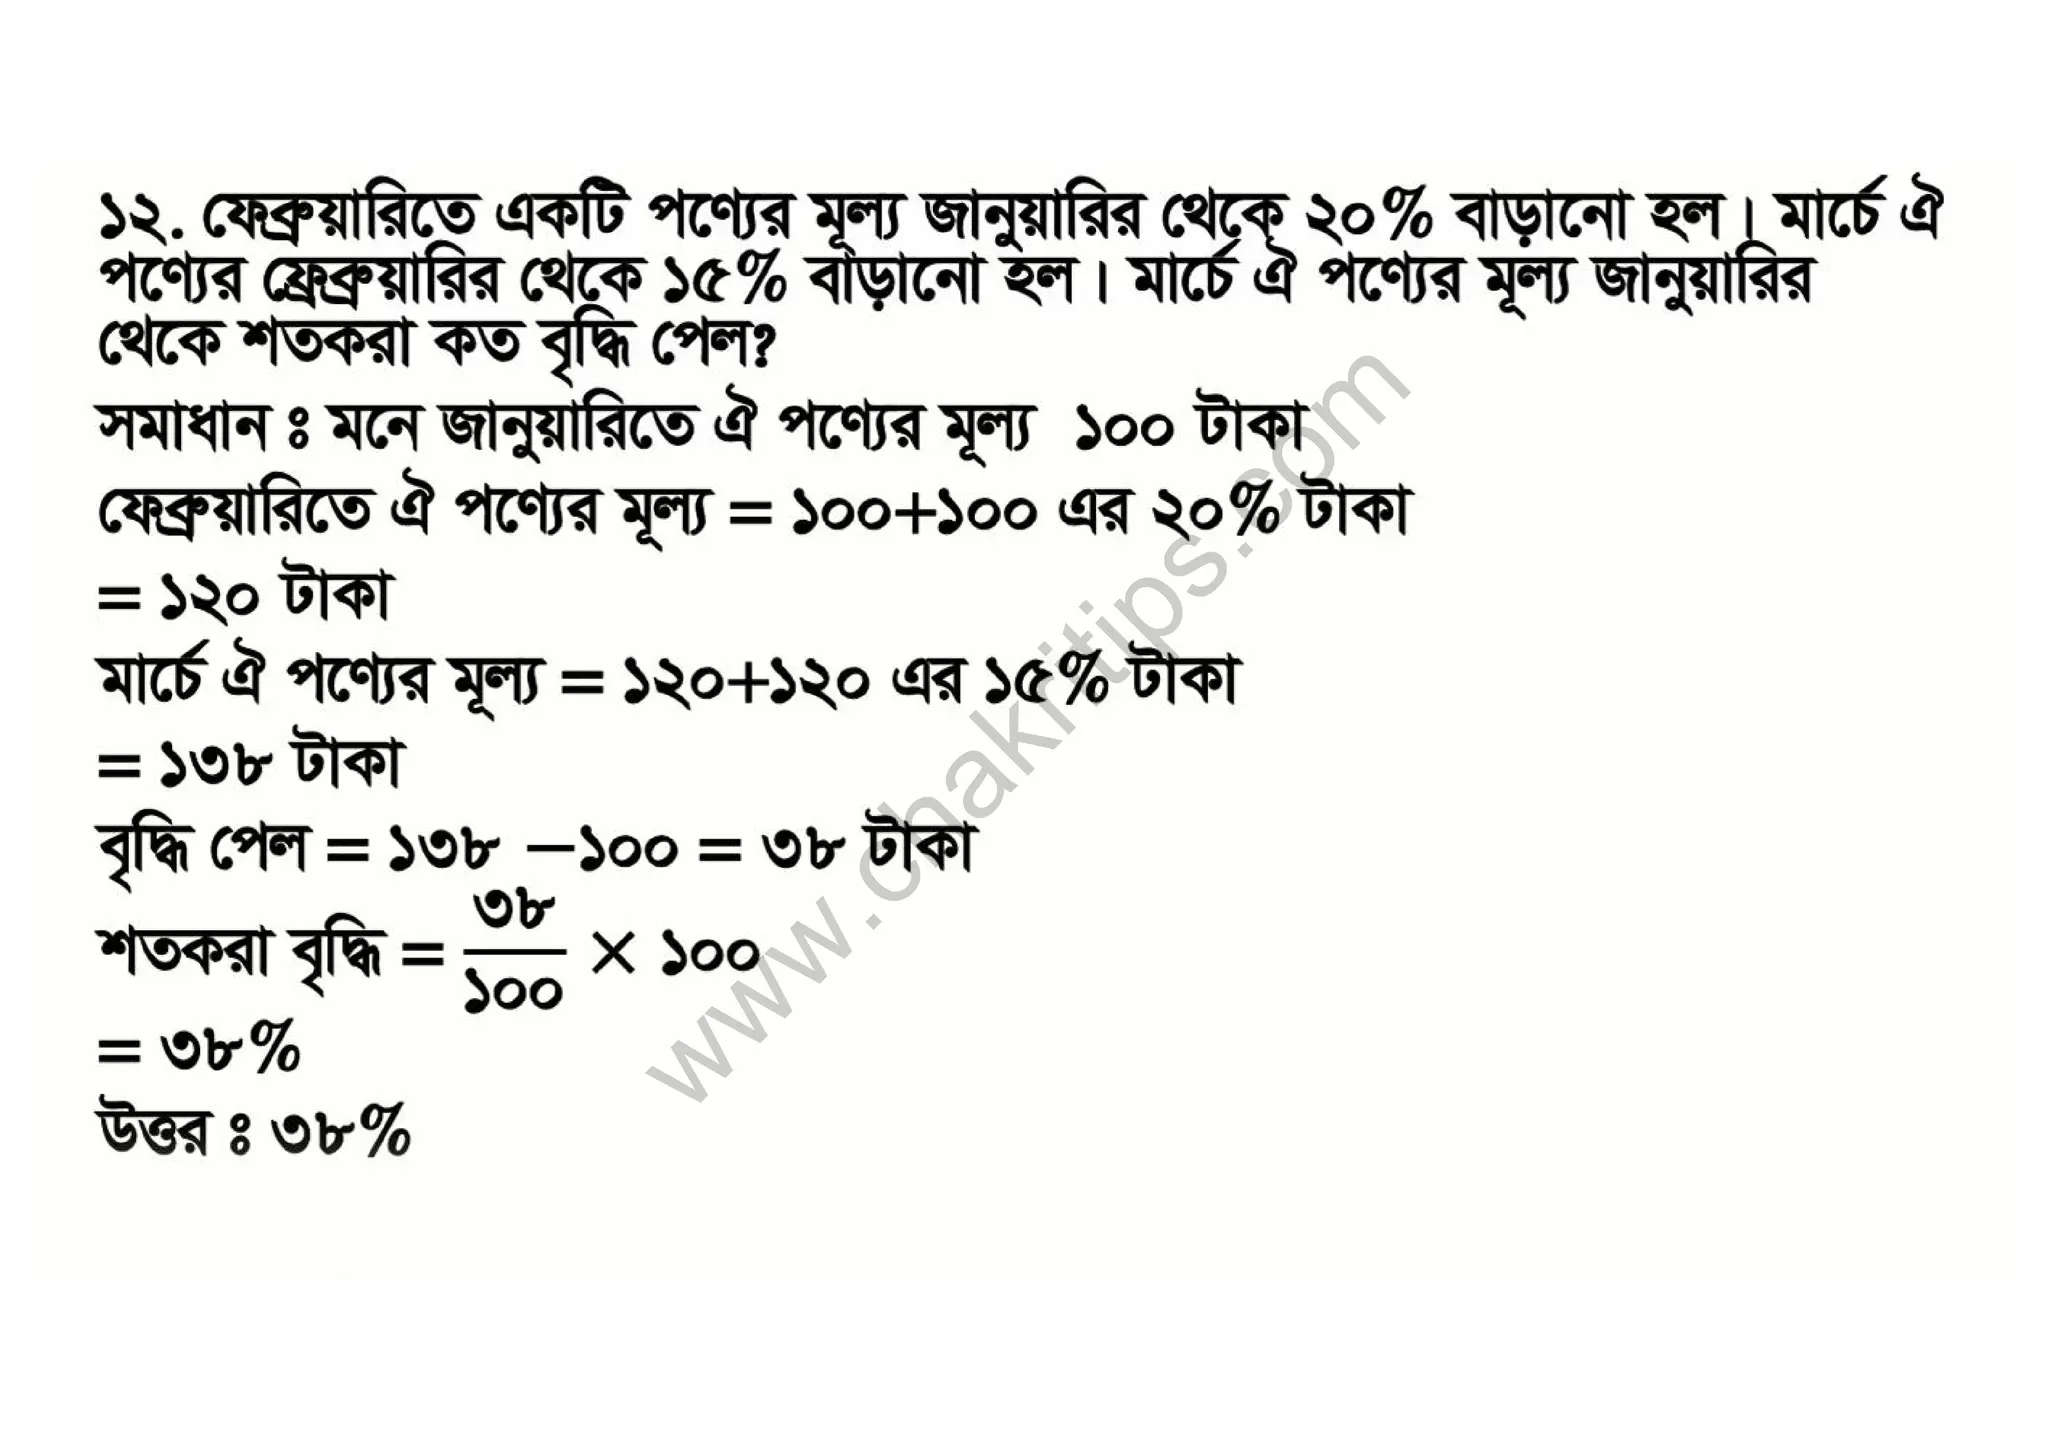 ১২. ফেব্রুয়ারিতে একটি পণ্যের মূল্য জানুয়ারির থেকে ২০% বাড়ানো হল। মার্চে ঐ
পণ্যের ফ্রেব্রুয়ারির থেকে ১৫% বাড়ানো হল। মার্চে ঐ পণ্যের মূল্য জানুয়ারির
থেকে শতকরা কত বৃদ্ধি পেল?
সমাধান ঃ মনে জানুয়ারিতে ঐ পণ্যের মূল্য ১০০ টাকা
ফেব্রুয়ারিতে ঐ পণ্যের মূল্য = ১০০+১০০ এর ২০% টাকা
= ১২০ টাকা
মার্চে ঐ পণ্যের মূল্য = ১২০+১২০ এর ১৫% টাকা
= ১৩৮ টাকা
বৃদ্ধি পেল = ১৩৮ –১০০ = ৩৮ টাকা
শতকরা বৃদ্ধি = ৩৮/১০০ × ১০০
= ৩৮%
উত্তর ঃ ৩৮%
www.chakritips.com